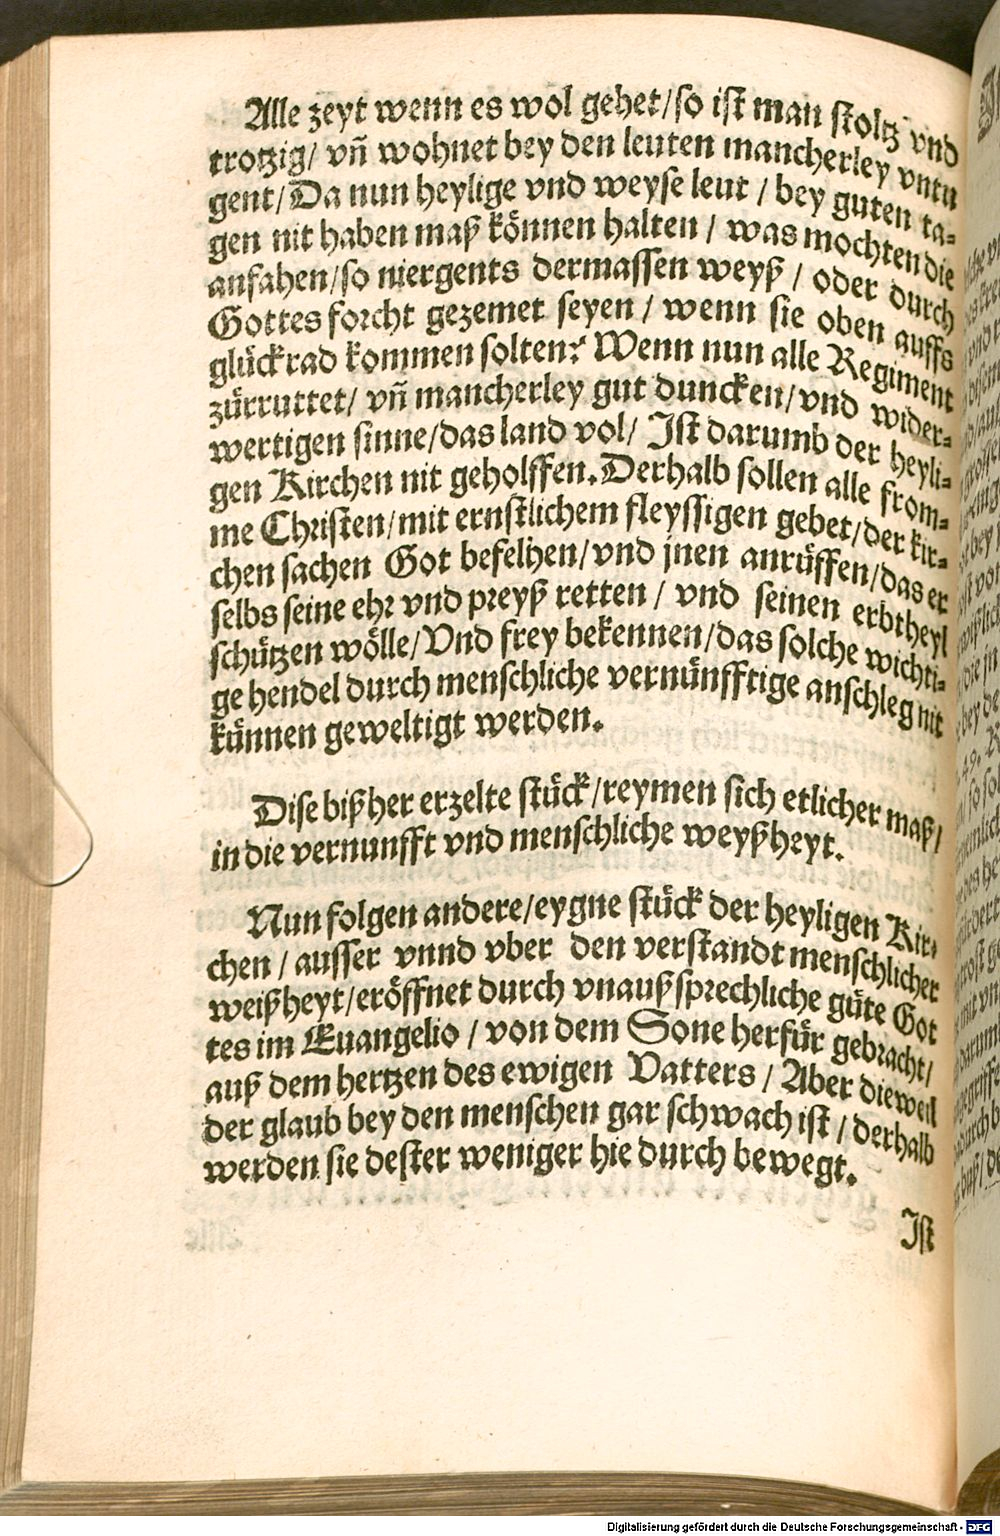 Alle zeyt wenn es wol gehet/so ist man stoltz vnd
trotzig/ vñ wohnet bey den leuten mancherley vntu
gent/Da nun heylige vnd weyse leut / bey guten ta-
gen nit haben maß können halten / was mochten die
anfahen/so niergents dermassen weyß / oder durch
Gottes forcht gezemet seyen / wenn sie oben auffs
glückrad kommen solten? Wenn nun alle Regiment
zürruttet/ vñ mancherley gut duncken/vnd wider-
wertigen sinne/das land vol/ Ist darumb der heyli-
gen Kirchen nit geholffen. Derhalb sollen alle from-
me Christen/mit ernstlichem fleyssigen gebet/der kir-
chen sachen Got befelhen/vnd jnen anrüffen/das er
selbs seine ehr vnd preyß retten / vnd seinen erbtheyl
schützen wölle/Vnd frey bekennen/das solche wichti-
ge hendel durch menschliche vernünfftige anschleg nit
künnen geweltigt werden.
Dise bißher erzelte stück/reymen sich etlicher maß/
in die vernunfft vnd menschliche weyßheyt.
Nun folgen andere/eygne stück der heyligen Kir-
chen / ausser vnnd vber den verstandt menschlicher
weißheyt/eröffnet durch vnaußsprechliche güte Got
tes im Euangelio / von dem Sone herfür gebracht/
auß dem hertzen des ewigen Vatters / Aber dieweil
der glaub bey den menschen gar schwach ist / derhalb
werden sie dester weniger hie durch bewegt.
Ist
Digitalisierung gefördert durch die Deutsche Forschungsgemeinschaft - DFG